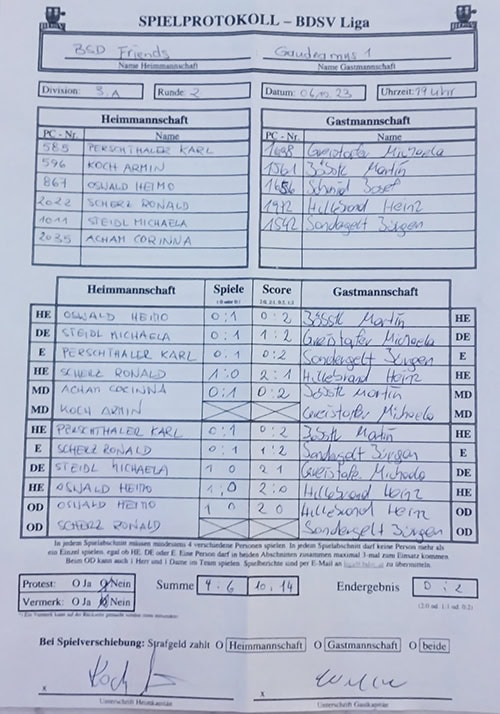 SPIELPROTOKOLL – BDSV Liga
BSD Friends Gaudeamus 1
Name Heimmannschaft Name Gastmannschaft
Division: 3.A Runde: 2 Datum: 06.10.23 Uhrzeit: 19 Uhr
Heimmannschaft Gastmannschaft
PC - Nr. Name PC - Nr. Name
585 PERSCHTHALER KARL 1698 Greistofer Michaela
596 KOCH ARMIN 1561 Martin
867 OSWALD HEIMO 1656 Schmid Josef
2022 SCHERZ RONALD 1972 Hillebrand Heinz
1011 STEIDL MICHAELA 1542 Sondergelt Jürgen
2035 ACHAM CORINNA
Heimmannschaft Spiele Score Gastmannschaft
HE OSWALD HEIMO 0:1 0:2 Martin HE
DE STEIDL MICHAELA 0:1 1:2 Greistofer Michaela DE
E PERSCHTHALER KARL 0:1 0:2 Sondergelt Jürgen E
HE SCHERZ RONALD 1:0 2:1 Hillebrand Heinz HE
MD ACHAM CORINNA 0:1 0:2 Martin MD
MD KOCH ARMIN Greistofer Michaela MD
HE PERSCHTHALER KARL 0:1 0:2 Martin HE
E SCHERZ RONALD 0:1 1:2 Sondergelt Jürgen E
DE STEIDL MICHAELA 1 0 2 1 Greistofer Michaela DE
HE OSWALD HEIMO 1:0 2:0 Hillebrand Heinz HE
OD OSWALD HEIMO 1 0 2 0 Hillebrand Heinz OD
OD SCHERZ RONALD Sondergelt Jürgen OD
In jedem Spielabschnitt müssen mindestens 4 verschiedene Personen spielen. In jedem Spielabschnitt darf keine Person mehr als
ein Einzel spielen, egal ob HE, DE oder E. Eine Person darf in beiden Abschnitten zusammen maximal 3-mal zum Einsatz kommen.
Beim OD kann auch 1 Herr und 1 Dame im Team spielen. Spielberichte sind per E-Mail an zu übermitteln.
Protest: O Ja O Nein Summe 4:6 10:14 Endergebnis 0:2
Vermerk: O Ja O Nein (2:0 od. 1:1 od. 0:2)
Bei Spielverschiebung: Strafgeld zahlt O Heimmannschaft O Gastmannschaft O beide
Koch
x x
Unterschrift Heimkapitän Unterschrift Gastkapitän